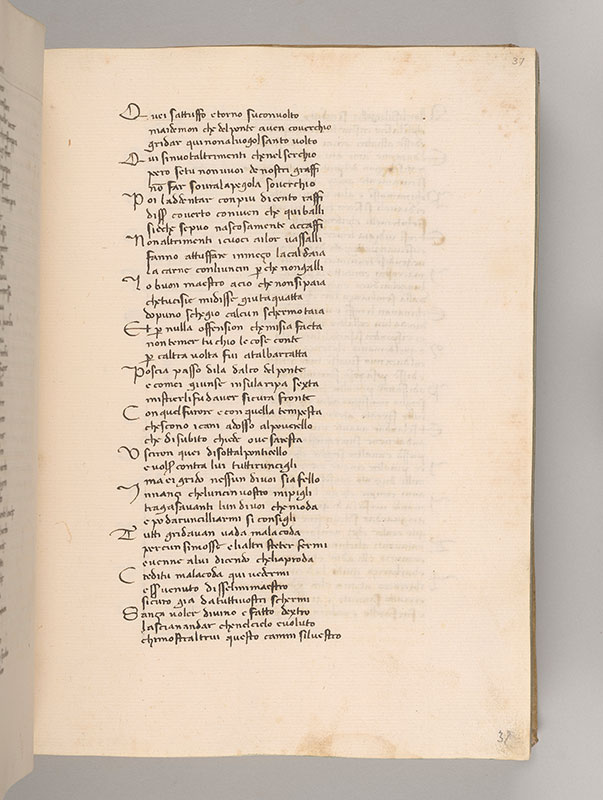 37
Quei sattuffo e torno su convolto
ma i demon che del ponte aven coverchio
gridar qui non a luogo l santo volto
Qui si nuota altrimenti che nel serchio
pero se tu non vuoi de nostri graffi
nō far sovra la pegola soverchio
Poi l addentar con piu di cento raffi
disser coverto conven che qui balli
si che se puo nascosamente accaffi
Non altrimenti i cuoci a i lor vassalli
fanno attuffare in mezo la caldaia
la carne con li uncin p che non galli
Lo buon maestro acio che non si paia
che tu ci sie mi disse giu t aquatta
dopo uno schegio calcun schermo t aia
Et p nulla offension che mi sia facta
non temer tu ch io le cose conte
p c altra volta fui a tal baratta
Poscia passo di la dal co del ponte
e com ei giunse in su la ripa sexta
mistier li fu d aver sicura fronte
Con quel furore e con quella tempesta
ch escono i cani adosso al povello
che di subito chiede ove s aresta
Usciron quei di sotto al ponticello
e volser contra lui tutti runcigli
ma ei grido nessun di voi sia fello
Innanzi che l uncin vostro mi pigli
traga s avanti l un di voi che m oda
e poi d aruncilliarmi si consigli
Tutti gridavan vada malacoda
per c un si mosse e li altri steter fermi
e venne a lui dicendo che li aproda
Credi tu malacoda qui vedermi
esser venuto disse l mi maestro
sicuro gia da tutti vostri schermi
Sanza voler divino e fatto dextro
lascian andar che nel cielo e voluto
ch i mostri altrui questo camin silvestro
38